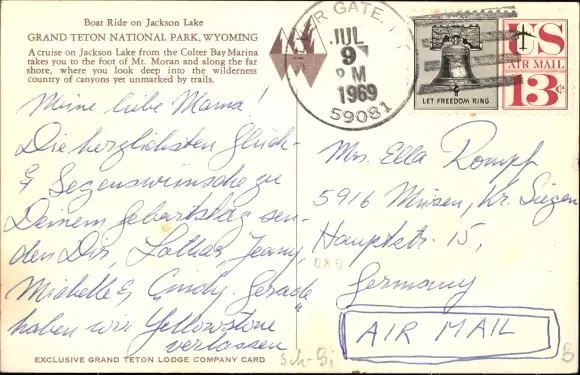 Boat Ride on Jackson Lake
GRAND TETON NATIONAL PARK, WYOMING
A cruise on Jackson Lake from the Colter Bay Marina
takes you to the foot of Mt. Moran and along the far
shore, where you look deep into the wilderness
country of canyons yet unmarked by trails.
Meine liebe Mama!
Die herzlichsten Glück-
& Segenswünsche zu
Deinem Geburtstag sen-
den Dir, Lothar, Jeany,
Michelle & "Cindy. Gerade
haben wir Yellowstone
verlassen
EXCLUSIVE GRAND TETON LODGE COMPANY CARD
GATE,
JUL
9
PM
1969
59081
LET FREEDOM RING
US
AIR MAIL
13¢
Mrs. Ella Rompf
5916 Müsen, Kr. Siegen
Hauptstr. 15,
Germany
AIR MAIL
oxo
B